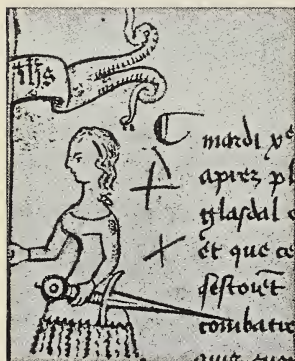 ihs
mardi x
aprez pl
glasdal e
et que ce
sestoiēt
combatre